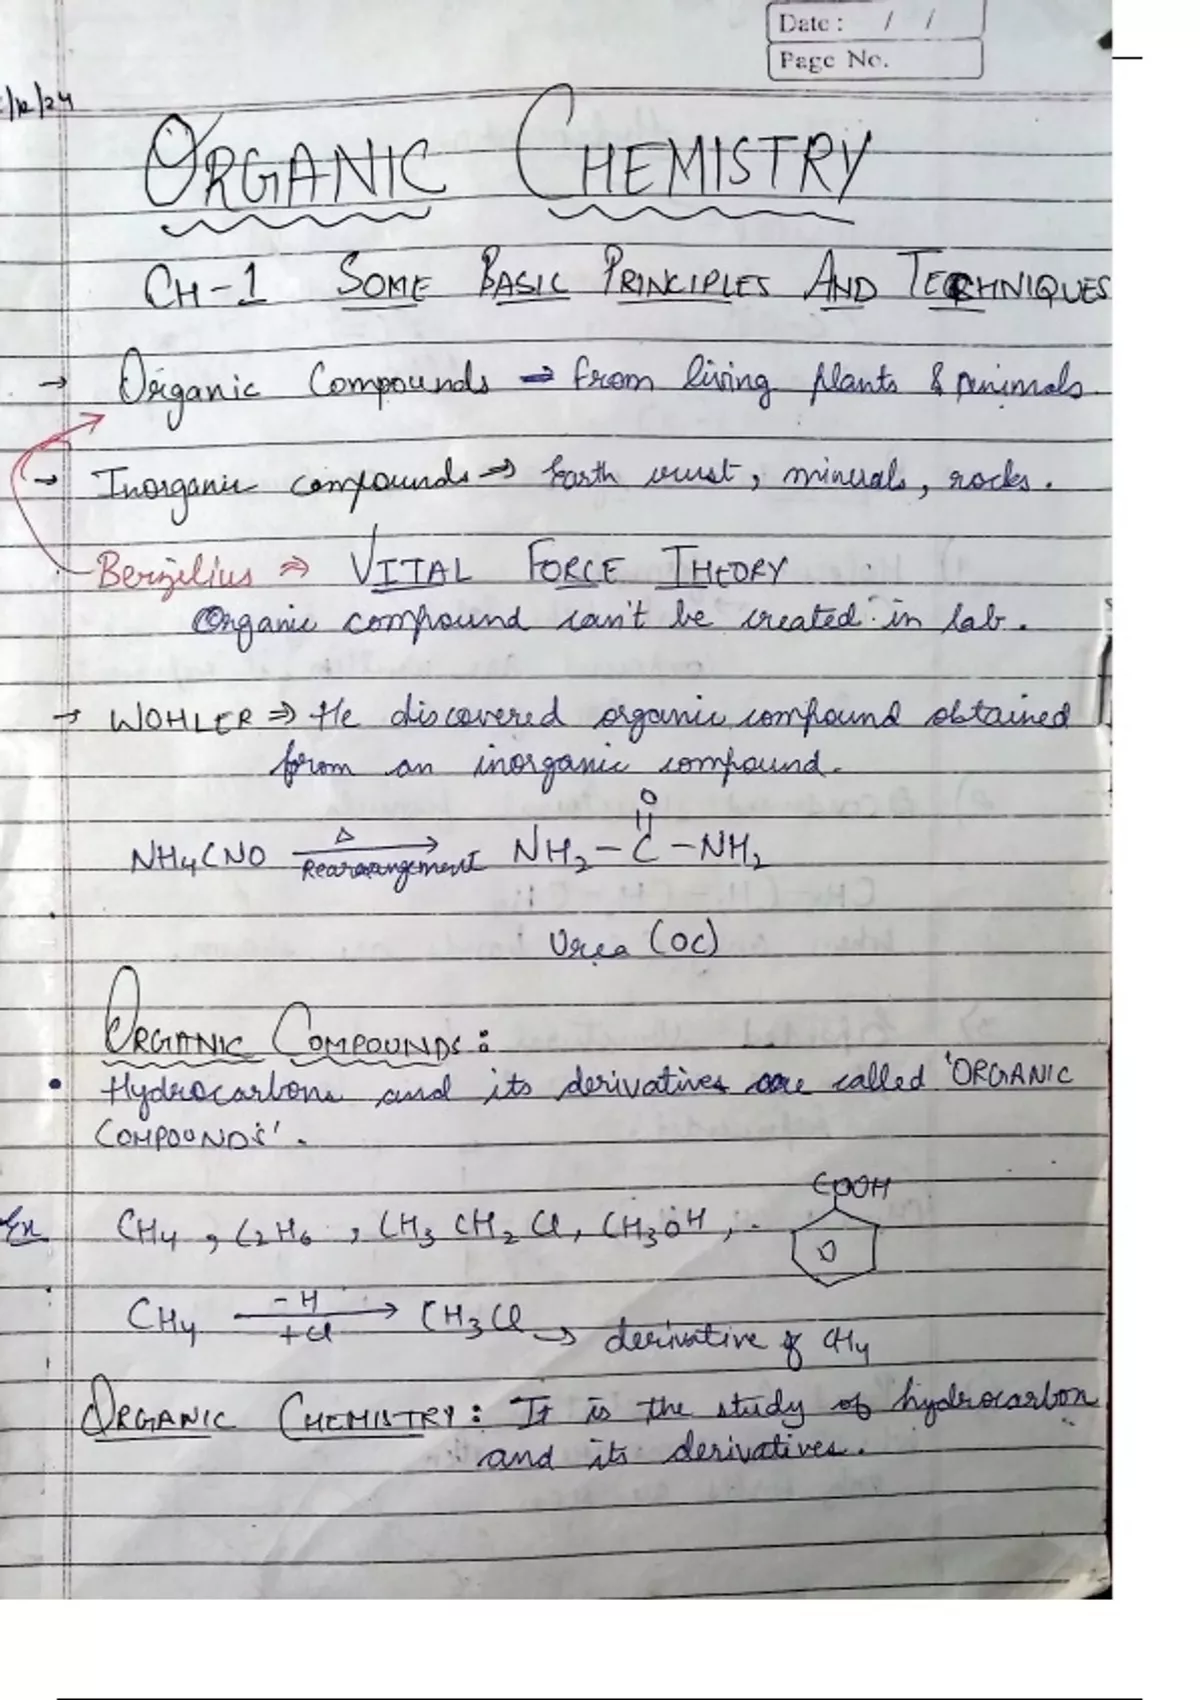 Date :    /    /
Page No.
/12/24
ORGANIC CHEMISTRY
CH-1 SOME BASIC PRINCIPLES AND TECHNIQUES
→ Organic Compounds ⇒ from living plants & animals.
→ Inorganic compounds ⇒ Earth crust, minerals, rocks.
Berzelius ⇒ VITAL FORCE THEORY
Organic compound can't be created in lab.
→ WOHLER ⇒ He discovered organic compound obtained
from an inorganic compound.
O
||
NH4CNO Δ → Rearrangement NH2 – C – NH2
Urea (OC)
ORGANIC COMPOUNDS :
• Hydrocarbons and its derivatives are called 'ORGANIC
COMPOUNDS'.
COOH
Ex CH4, C2H6, CH3 CH2 Cl, CH3OH,
CH4 –H → +Cl CH3Cl → derivative of CH4
ORGANIC CHEMISTRY : It is the study of hydrocarbon
and its derivatives.